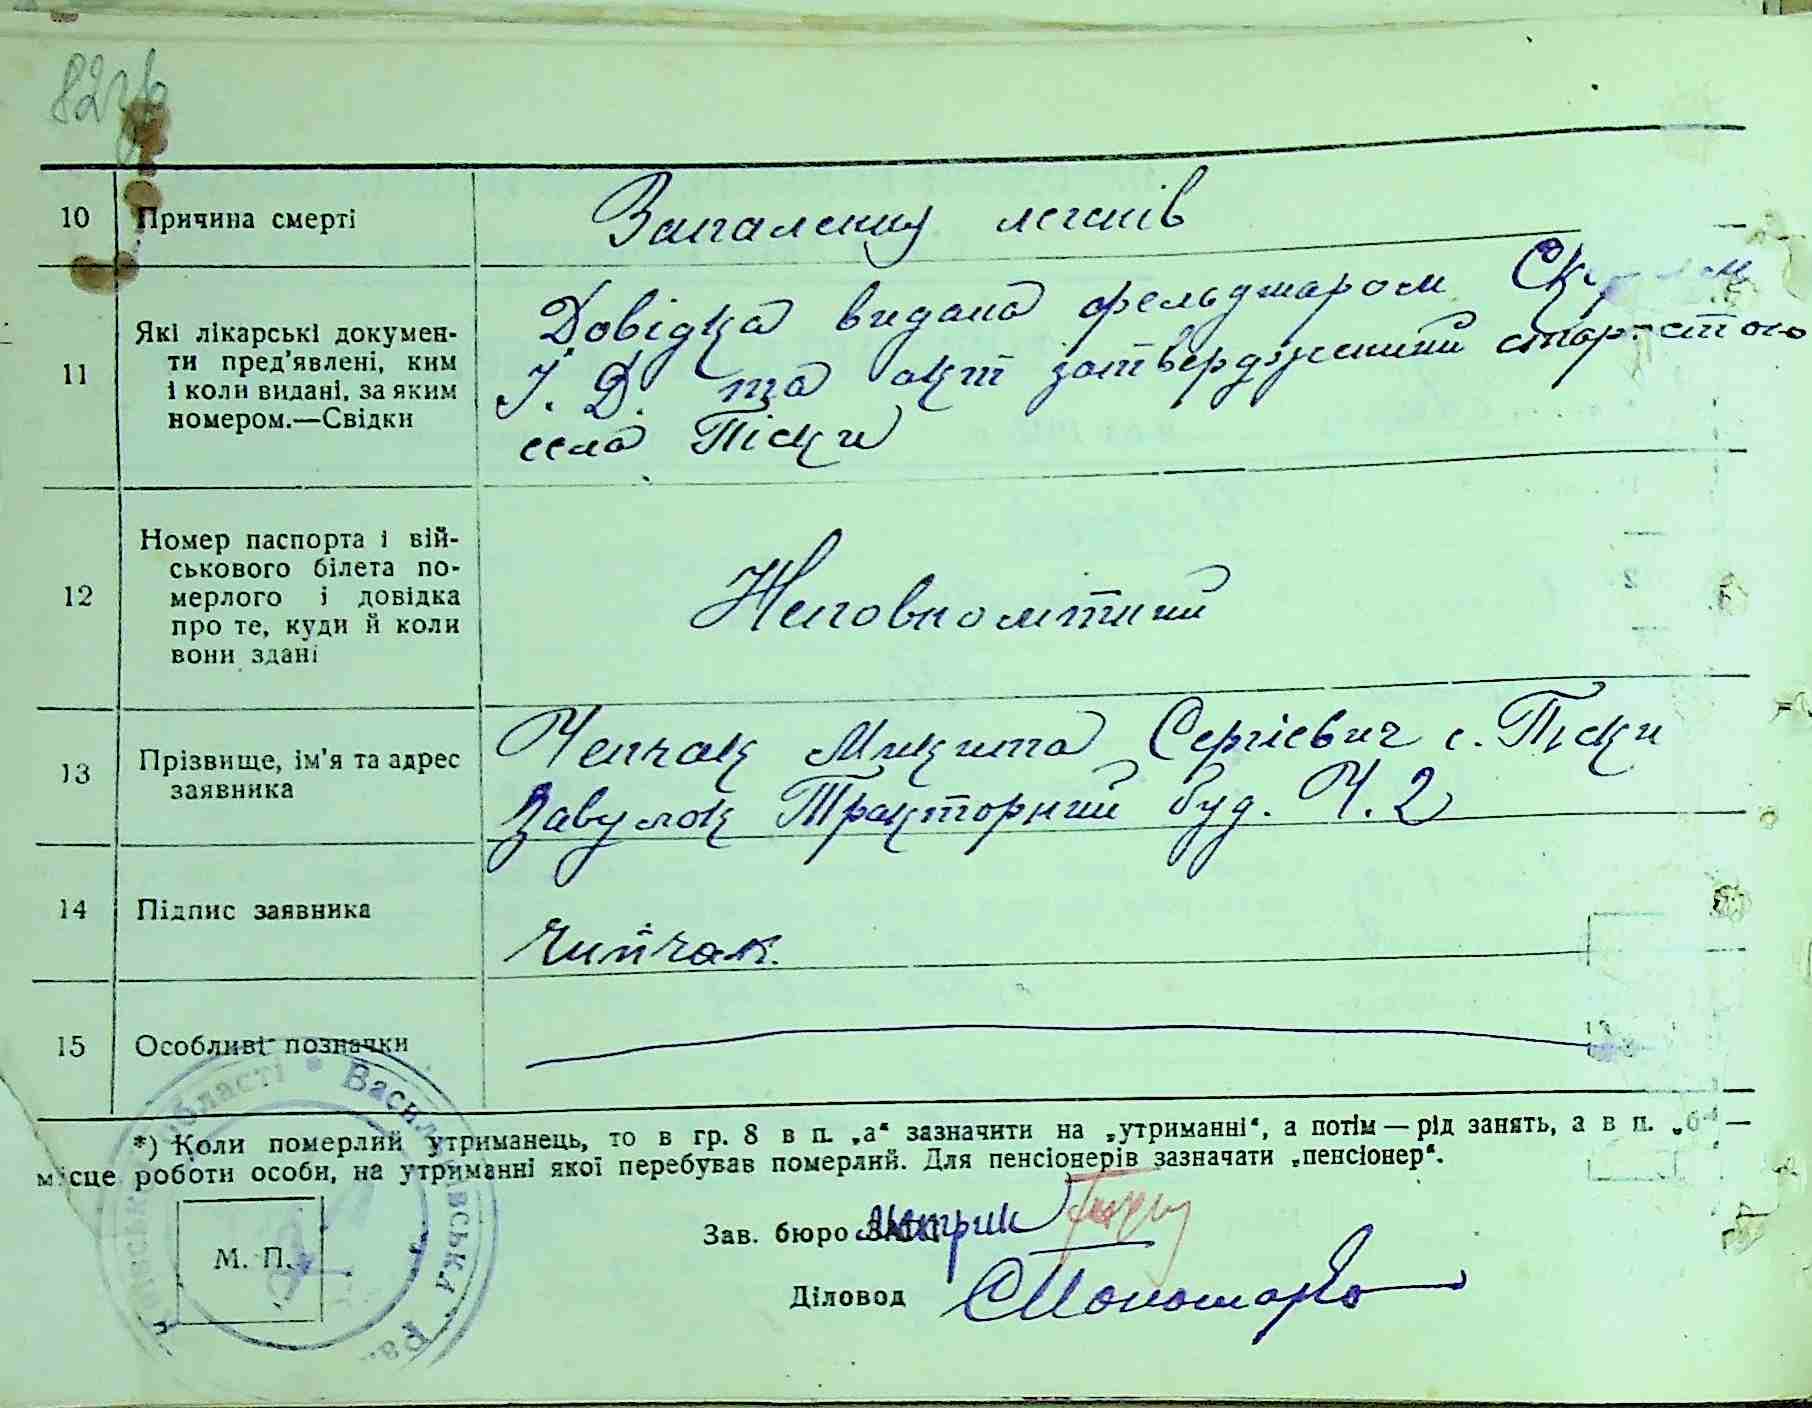 82зв
10 Причина смерті Запалення легенів
11 Які лікарські докумен-
ти пред'явлені, ким
і коли видані, за яким
номером.—Свідки
Довідка видана фельдшаром
І. Д. та акт затверджений старостою
села Піски
12 Номер паспорта і вій-
ськового білета по-
мерлого і довідка
про те, куди й коли
вони здані
Неповнолітний
13 Прізвище, ім'я та адрес
заявника
Чепчак Микита Сергієвич с. Піски
Завулок Тракторний буд. Ч. 2
14 Підпис заявника Чипчак.
15 Особливі позначки
*) Коли померлий утриманець, то в гр. 8 в п. „а“ зазначити на „утриманні“, а потім — рід занять, а в п. „б“ —
місце роботи особи, на утриманні якої перебував померлий. Для пенсіонерів зазначати „пенсіонер“.
області • Василівська Ра
М. П.
Зав. бюро ЗАГС метрик
Діловод